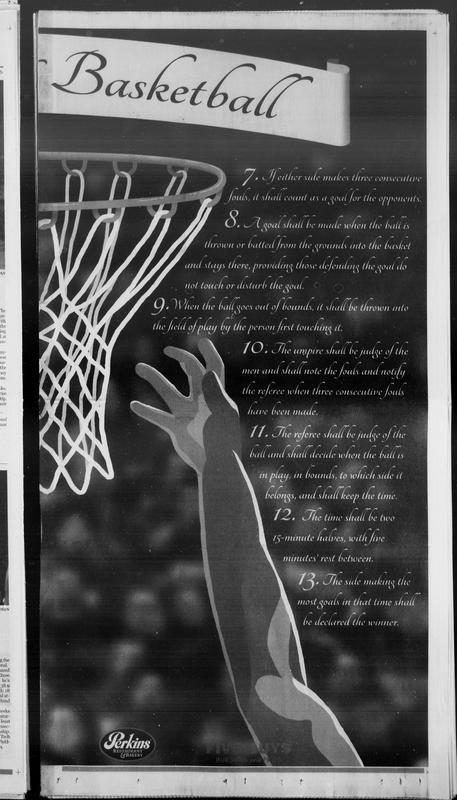 Basketball
7. If either side makes three consecutive
fouls, it shall count as a goal for the opponents.
8. A goal shall be made when the ball is
thrown or batted from the grounds into the basket
and stays there, providing those defending the goal do
not touch or disturb the goal.
9. When the ball goes out of bounds, it shall be thrown into
the field of play by the person first touching it.
10. The umpire shall be judge of the
men and shall note the fouls and notify
the referee when three consecutive fouls
have been made.
11. The referee shall be judge of the
ball and shall decide when the ball is
in play, in bounds, to which side it
belongs, and shall keep the time.
12. The time shall be two
15-minute halves, with five
minutes' rest between.
13. The side making the
most goals in that time shall
be declared the winner.
Perkins
RESTAURANT
& BAKERY
FIVE GUYS